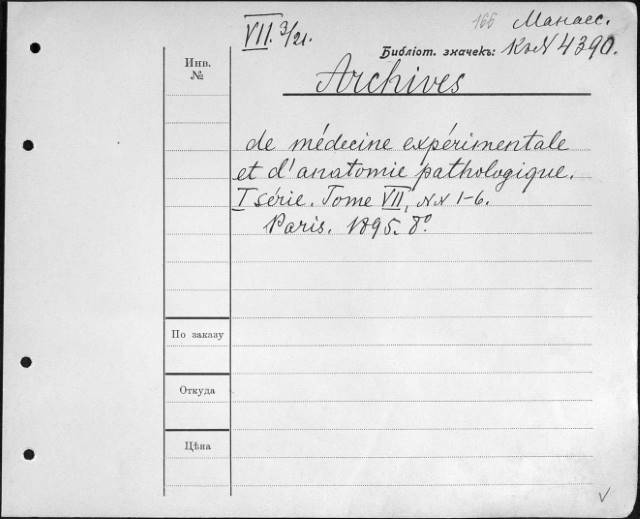 166 Манасс.
VII. 3/21.
Библіот. значекъ: КъN 4390.
Инв.
№
Archives
de médecine expérimentale
et d'anatomie pathologique.
I série. Tome VII, NN 1-6.
Paris. 1895. 8º.
По заказу
Откуда
Цѣна